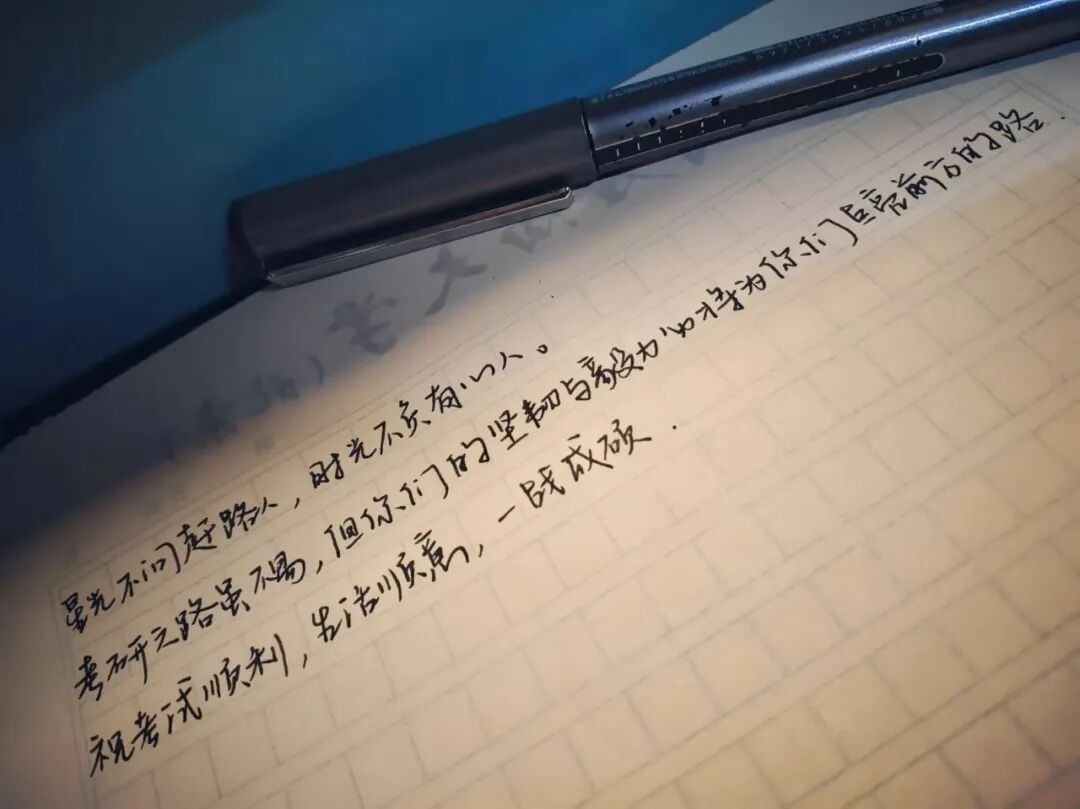 星光不问赶路人，时光不负有心人。
考研之路虽不易，但你们的坚韧与毅力必将为你们点亮前方的路.
祝考试顺利，生活顺意，一战成硕.